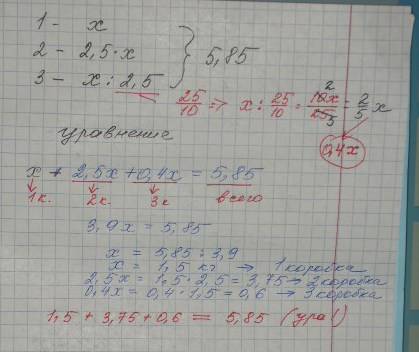 1 - x
2 - 2,5·x } 5,85
3 - x : 2,5
25/10 => x : 25/10 = 10x/25 = 2/5 x
2 5
0,4x
уравнение
x + 2,5x + 0,4x = 5,85
1к. 2к. 3к всего
3,9x = 5,85
x = 5,85 : 3,9
x = 1,5 кг → 1 коробка
2,5x = 1,5·2,5 = 3,75 → 2 коробка
0,4x = 0,4·1,5 = 0,6 → 3 коробка
1,5 + 3,75 + 0,6 = 5,85 (ура!)